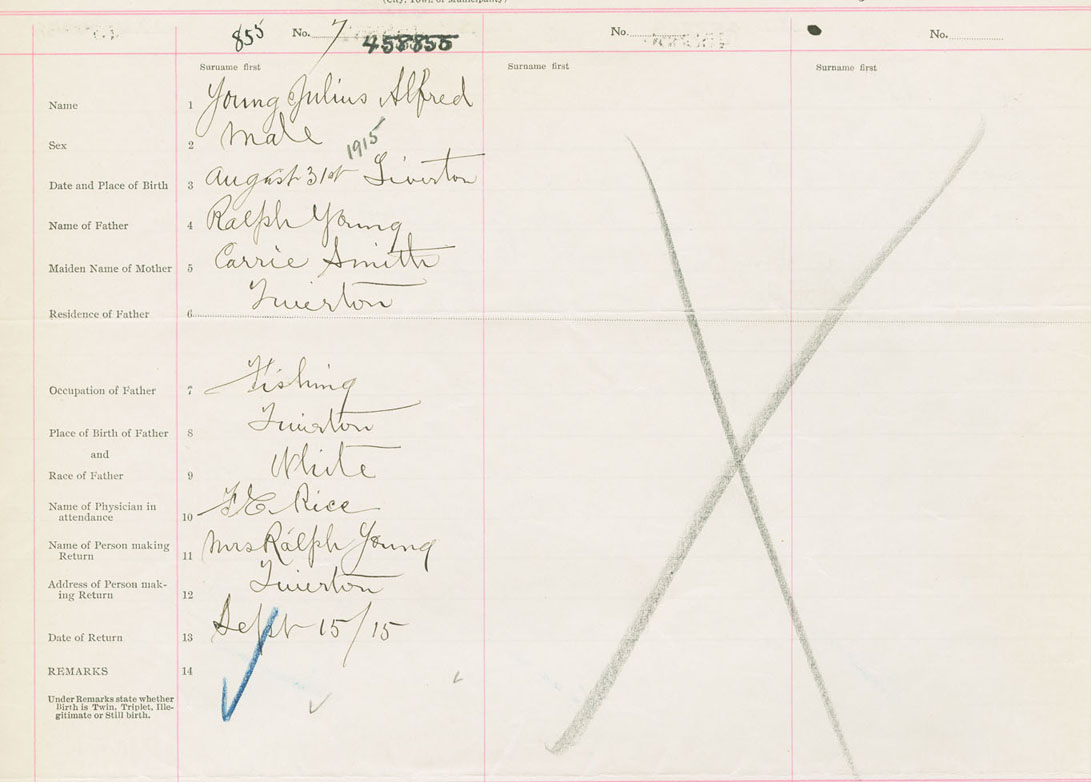 (City, Town or Municipality)
855 No. 7 458855 No. No.
Surname first Surname first Surname first
Name 1 Young Julius Alfred
Sex 2 Male
1915
Date and Place of Birth 3 August 31st Tiverton
Name of Father 4 Ralph Young
Maiden Name of Mother 5 Carrie Smith
Residence of Father 6 Tiverton
Occupation of Father 7 Fishing
Place of Birth of Father 8 Tiverton
and
Race of Father 9 White
Name of Physician in
attendance 10 F E Rice
Name of Person making
Return 11 Mrs Ralph Young
Address of Person mak-
ing Return 12 Tiverton
Date of Return 13 Sept 15/15
REMARKS 14
Under Remarks state whether
Birth is Twin, Triplet, Ille-
gitimate or Still birth.